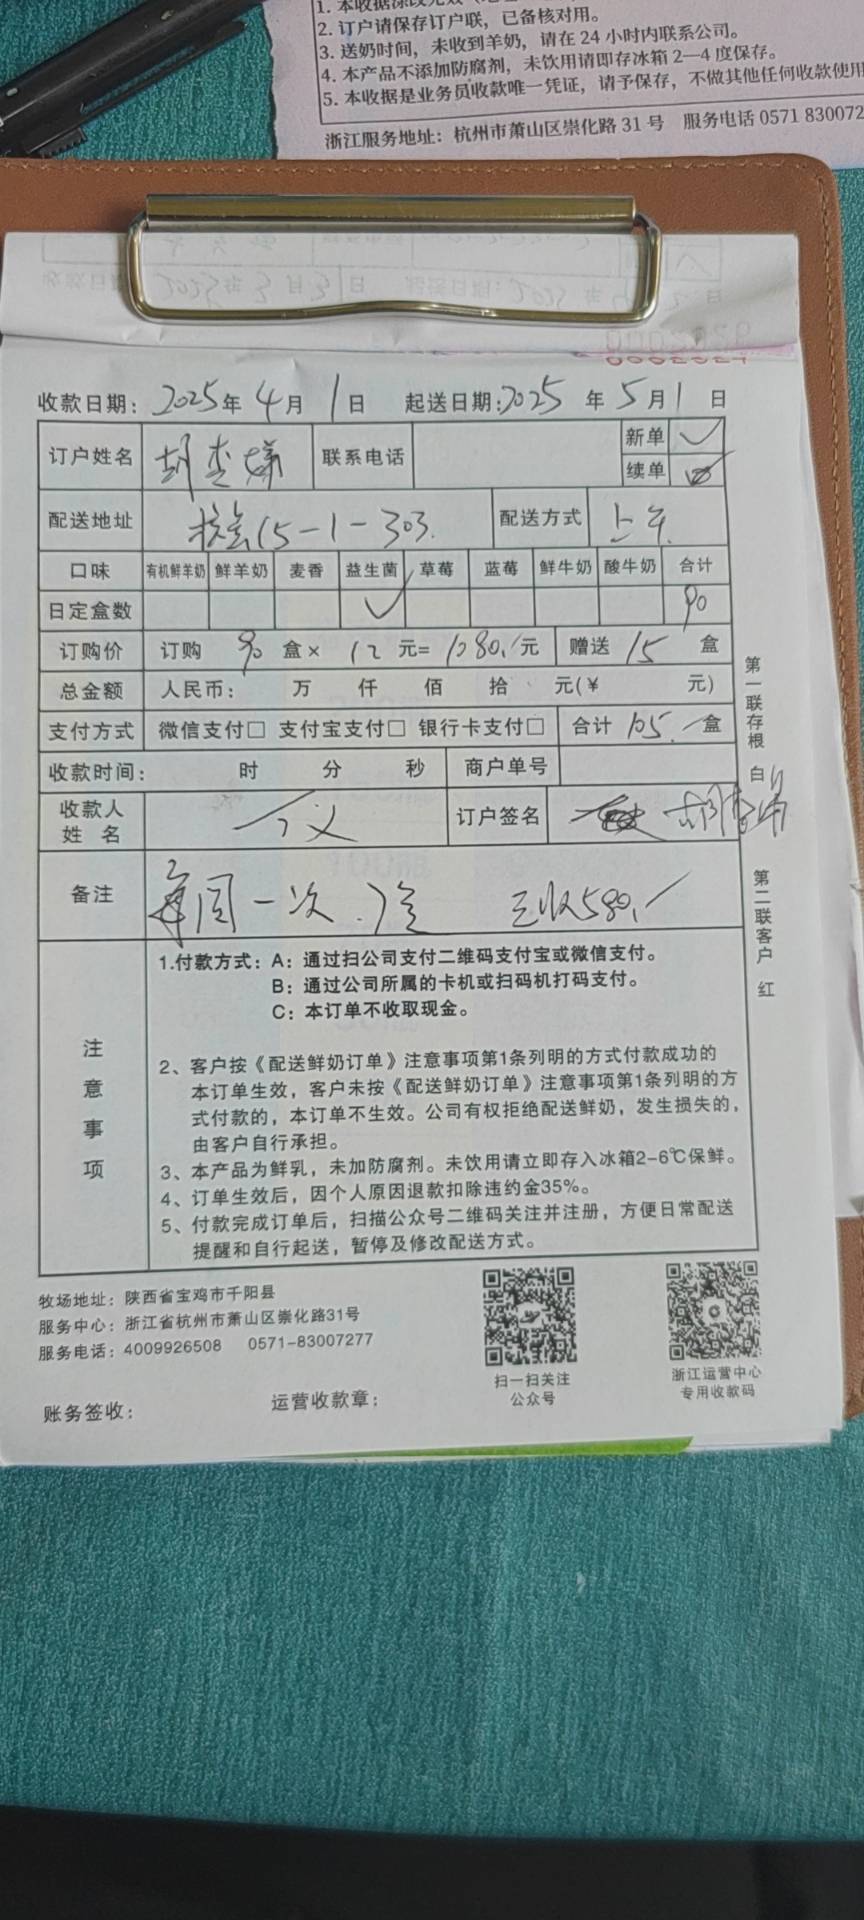 1. 本收据
2. 订户请保存订户联，已备核对用。
3. 送奶时间，未收到羊奶，请在 24 小时内联系公司。
4. 本产品不添加防腐剂，未饮用请即存冰箱 2—4 度保存。
5. 本收据是业务员收款唯一凭证，请予保存，不做其他任何收款使用
浙江服务地址：杭州市萧山区崇化路 31 号 服务电话 0571 830072
收款日期：2025年4月1日 起送日期：2025年5月1日
订户姓名 胡 联系电话 新单 ✓
续单
配送地址 15-1-303 配送方式 上午
口味 有机鲜羊奶 鲜羊奶 麦香 益生菌 草莓 蓝莓 鲜牛奶 酸牛奶 合计
日定盒数 ✓ 90
订购价 订购 90 盒× 12 元= 1080.元 赠送 15 盒
总金额 人民币： 万 仟 佰 拾 元(¥ 元)
支付方式 微信支付□ 支付宝支付□ 银行卡支付□ 合计 105. 盒
收款时间： 时 分 秒 商户单号
收款人姓名 订户签名 胡
备注 每周一次. 已收580.
注意事项
1.付款方式：A：通过扫公司支付二维码支付宝或微信支付。
B：通过公司所属的卡机或扫码机打码支付。
C：本订单不收取现金。
2、客户按《配送鲜奶订单》注意事项第1条列明的方式付款成功的
本订单生效，客户未按《配送鲜奶订单》注意事项第1条列明的方
式付款的，本订单不生效。公司有权拒绝配送鲜奶，发生损失的，
由客户自行承担。
3、本产品为鲜乳，未加防腐剂。未饮用请立即存入冰箱2-6℃保鲜。
4、订单生效后，因个人原因退款扣除违约金35%。
5、付款完成订单后，扫描公众号二维码关注并注册，方便日常配送
提醒和自行起送，暂停及修改配送方式。
第一联存根 白
第二联客户 红
牧场地址：陕西省宝鸡市千阳县
服务中心：浙江省杭州市萧山区崇化路31号
服务电话：4009926508 0571-83007277
扫一扫关注
公众号
浙江运营中心
专用收款码
账务签收： 运营收款章：